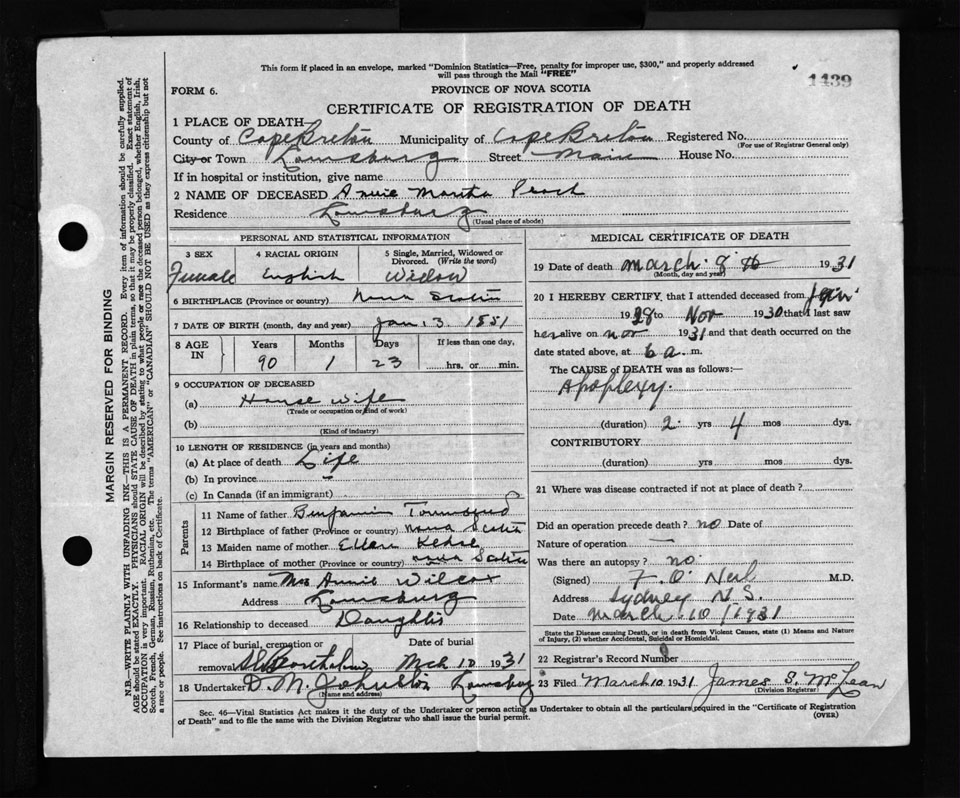 This form if placed in an envelope, marked "Dominion Statistics—Free, penalty for improper use, $300," and properly addressed
will pass through the Mail "FREE"
1439
FORM 6.
PROVINCE OF NOVA SCOTIA
CERTIFICATE OF REGISTRATION OF DEATH
1 PLACE OF DEATH—
County of Cape Breton Municipality of Cape Breton Registered No.
(For use of Registrar General only)
City or Town Louisburg Street Main House No.
If in hospital or institution, give name
2 NAME OF DECEASED Annie Martha Peach
Residence Louisburg
(Usual place of abode)
PERSONAL AND STATISTICAL INFORMATION
3 SEX 4 RACIAL ORIGIN 5 Single, Married, Widowed or
Divorced. (Write the word)
Female English Widow
6 BIRTHPLACE (Province or country) Nova Scotia
7 DATE OF BIRTH (month, day and year) Jan. 3. 1851
8 AGE IN Years Months Days If less than one day,
90 1 23 hrs. or min.
9 OCCUPATION OF DECEASED
(a) House wife
(Trade or occupation or kind of work)
(b)
(Kind of industry)
10 LENGTH OF RESIDENCE (in years and months)
(a) At place of death Life
(b) In province
(c) In Canada (if an immigrant)
Parents
11 Name of father Benjamin Townsend
12 Birthplace of father (Province or country) Nova Scotia
13 Maiden name of mother Ellen
14 Birthplace of mother (Province or country) Nova Scotia
15 Informant's name Mrs Annie Wilcox
Address Louisburg
16 Relationship to deceased Daughter
17 Place of burial, cremation or Date of burial
removal Mch 10 1931
18 Undertaker D. M. Johnston Louisburg
(Name and address)
MEDICAL CERTIFICATE OF DEATH
19 Date of death March 8th 1931
(Month, day and year)
20 I HEREBY CERTIFY, that I attended deceased from Jan
1928 to Nov 1930 that I last saw
her alive on Nov 1931 and that death occurred on
date stated above, at 6 a. m.
The CAUSE of DEATH was as follows:—
Apoplexy.
(duration) 2 yrs 4 mos dys.
CONTRIBUTORY
(duration) yrs mos dys.
21 Where was disease contracted if not at place of death?
Did an operation precede death? no Date of
Nature of operation —
Was there an autopsy? no
(Signed) F. O'Neil M.D.
Address Sydney N.S.
Date March 10/1931
State the Disease causing Death, or in death from Violent Causes, state (1) Means and Nature
of Injury, (2) whether Accidental, Suicidal or Homicidal.
22 Registrar's Record Number
23 Filed March 10 1931 James S. McLean
(Division Registrar)
Sec. 46—Vital Statistics Act makes it the duty of the Undertaker or person acting as Undertaker to obtain all the particulars required in the "Certificate of Registration
of Death" and to file the same with the Division Registrar who shall issue the burial permit.
(OVER)
MARGIN RESERVED FOR BINDING
N.B.—WRITE PLAINLY WITH UNFADING INK—THIS IS A PERMANENT RECORD. Every item of information should be carefully supplied.
AGE should be stated EXACTLY. PHYSICIANS should STATE CAUSE OF DEATH in plain terms, so that it may be properly classified. Exact statement of
OCCUPATION is very important. RACIAL ORIGIN will be described by stating to what people or race the deceased person belonged, whether English, Irish,
Scotch, French, German, Russian, Ruthenian, etc. The terms "AMERICAN" or "CANADIAN" SHOULD NOT BE USED as they express citizenship but not
a race or people. See instructions on back of Certificate.